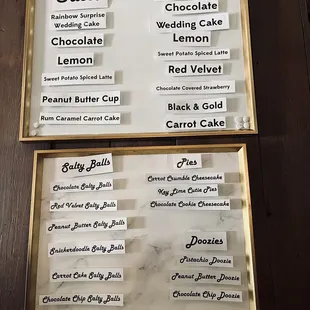 Rainbow Surprise
Wedding Cake
Chocolate
Lemon
Sweet Potato Spiced Latte
Peanut Butter Cup
Rum Caramel Carrot Cake
Chocolate
Wedding Cake
Lemon
Sweet Potato Spiced Latte
Red Velvet
Chocolate Covered Strawberry
Black & Gold
Carrot Cake
Salty Balls
Chocolate Salty Balls
Red Velvet Salty Balls
Peanut Butter Salty Balls
Snickerdoodle Salty Balls
Carrot Cake Salty Balls
Chocolate Chip Salty Balls
Pies
Carrot Crumble Cheesecake
Key Lime Cutie Pies
Chocolate Cookie Cheesecake
Doozies
Pistachio Doozie
Peanut Butter Doozie
Chocolate Chip Doozie